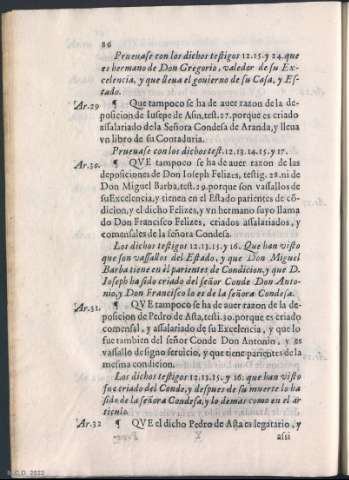 26
Prueuase con los dichos testigos 12.15. y 24. que
es hermano de Don Gregorio, valedor de su Ex-
celencia, y que lleua el gouierno de su Casa, y Es-
tado.
Ar.29 ¶ Que tampoco se ha de auer razon de la de-
posicion de Iusepe de Asin, test. 27. porque es criado
assalariado de la Señora Condesa de Aranda, y lleua
vn libro de su Contaduria.
Prueuase con los dichos test. 12.13.14.15. y 17.
Ar.30. ¶ QVE tampoco se ha de auer razon de las
deposiciones de Don Ioseph Felizes, testig. 28. ni de
Don Miguel Barba, test. 29. porque son vassallos de
su Excelencia, y tienen en el Estado parientes de cō-
dicion, y el dicho Felizes, y vn hermano suyo llama
do Don Francisco Felizes, criados assalariados, y
comensales de la señora Condesa.
Los dichos testigos 12.13.15. y 16. Que han visto
que son vassallos del Estado, y que Don Miguel
Barba tiene en èl parientes de Condicion, y que D.
Ioseph ha sido criado del señor Conde Don Anto-
nio, y Don Francisco lo es de la señora Condesa.
Ar.31. ¶ QVE tampoco se ha de auer razon de la de-
posicion de Pedro de Asta, testi. 30. porque es criado
comensal, y assalariado de su Excelencia, y que lo
fue tambien del señor Conde Don Antonio, y es
vassallo de signo seruicio, y que tiene parientes de la
mesma condicion.
Los dichos testigos 12.13.15. y 16. que han visto
fue criado del Conde, y despues de su muerte lo ha
sido de la señora Condesa, y lo demas como en el ar
ticulo.
Ar.32 ¶ QVE el dicho Pedro de Asta es legatario, y
assi